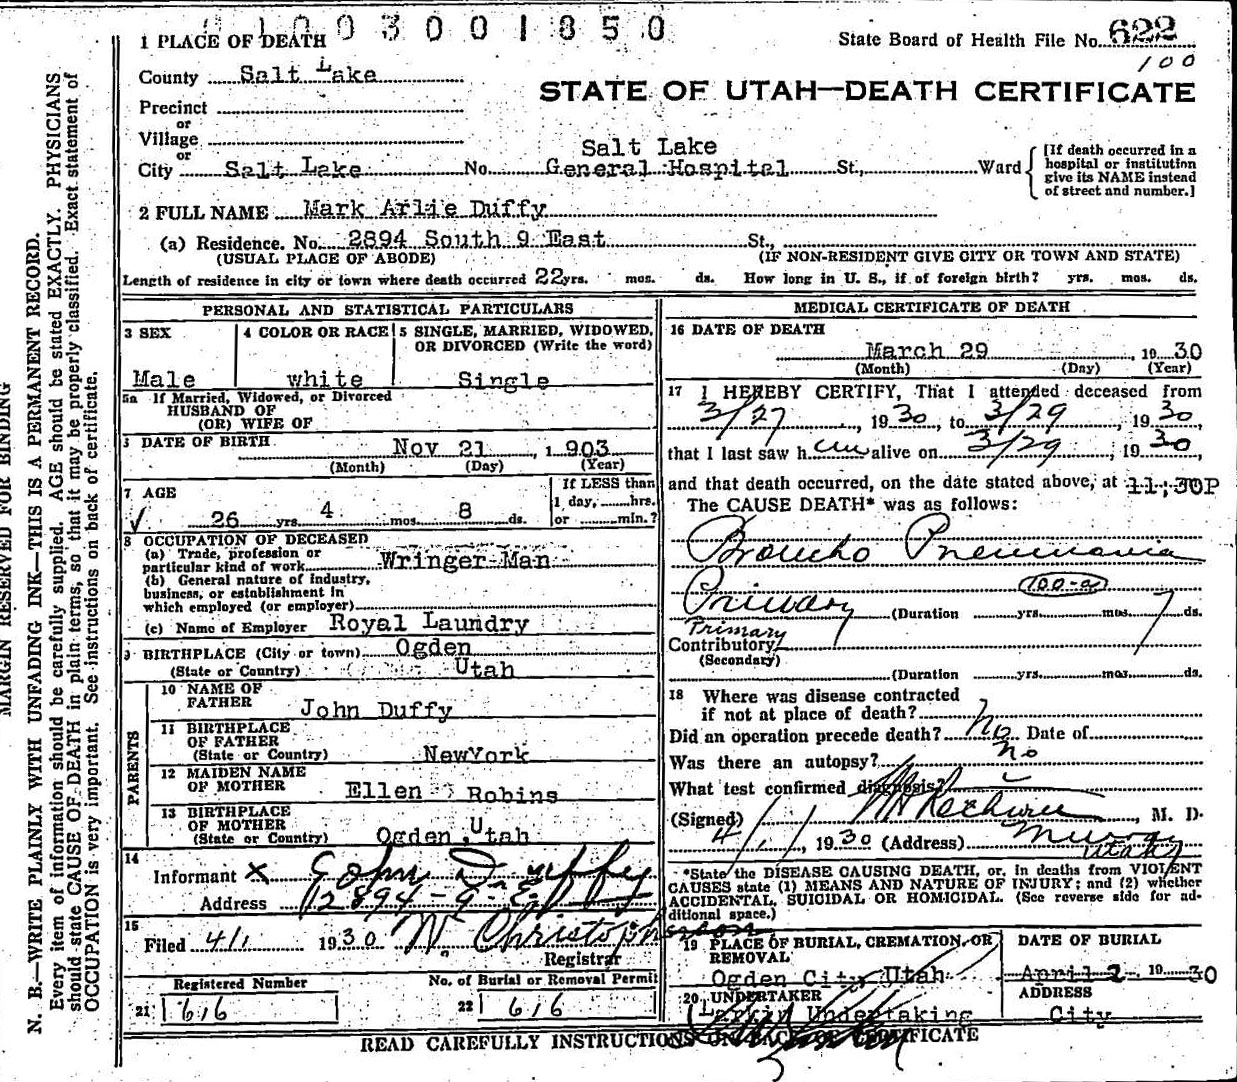 1003001850
State Board of Health File No. 622
100
1 PLACE OF DEATH
County Salt Lake
STATE OF UTAH—DEATH CERTIFICATE
Precinct
or
Village
or
City Salt Lake No. Salt Lake General Hospital St., Ward
[If death occurred in a hospital or institution give its NAME instead of street and number.]
2 FULL NAME Mark Arlie Duffy
(a) Residence. No. 2894 South 9 East St.,
(USUAL PLACE OF ABODE) (IF NON-RESIDENT GIVE CITY OR TOWN AND STATE)
Length of residence in city or town where death occurred 22 yrs. mos. ds. How long in U. S., if of foreign birth? yrs. mos. ds.
PERSONAL AND STATISTICAL PARTICULARS
3 SEX
Male
4 COLOR OR RACE
white
5 SINGLE, MARRIED, WIDOWED, OR DIVORCED (Write the word)
Single
5a If Married, Widowed, or Divorced
HUSBAND OF
(OR) WIFE OF
DATE OF BIRTH Nov 21, 1903
(Month) (Day) (Year)
7 AGE
26 yrs. 4 mos. 8 ds.
If LESS than
1 day, hrs.
or min.?
8 OCCUPATION OF DECEASED
(a) Trade, profession or
particular kind of work Wringer Man
(b) General nature of industry,
business, or establishment in
which employed (or employer)
(c) Name of Employer Royal Laundry
9 BIRTHPLACE (City or town) Ogden
(State or Country) Utah
PARENTS
10 NAME OF
FATHER John Duffy
11 BIRTHPLACE
OF FATHER
(State or Country) NewYork
12 MAIDEN NAME
OF MOTHER Ellen Robins
13 BIRTHPLACE
OF MOTHER
(State or Country) Ogden, Utah
14
Informant X John Duffy
Address 2894-9-E
15
Filed 4/1 1930 W. Christopherson
Registrar
Registered Number
21 616
No. of Burial or Removal Permit
22 616
MEDICAL CERTIFICATE OF DEATH
16 DATE OF DEATH
March 29, 1930
(Month) (Day) (Year)
17 I HEREBY CERTIFY, That I attended deceased from
3/27, 1930, to 3/29, 1930
that I last saw h alive on 3/29, 1930,
and that death occurred, on the date stated above, at 11;30P
The CAUSE DEATH* was as follows:
Broncho Pneumonia
100-a
Primary (Duration yrs. mos. 7 ds.
Primary
Contributory
(Secondary)
(Duration yrs. mos. ds.
18 Where was disease contracted
if not at place of death?
Did an operation precede death? No Date of
Was there an autopsy? no
What test confirmed diagnosis?
(Signed) , M. D.
4/1/, 1930 (Address) Murray
Utah
*State the DISEASE CAUSING DEATH, or, in deaths from VIOLENT
CAUSES state (1) MEANS AND NATURE OF INJURY; and (2) whether
ACCIDENTAL, SUICIDAL OR HOMICIDAL. (See reverse side for ad-
ditional space.)
19 PLACE OF BURIAL, CREMATION, OR
REMOVAL
Ogden City Utah
DATE OF BURIAL
April 2 1930
20 UNDERTAKER
Larkin Undertaking
ADDRESS
City
READ CAREFULLY INSTRUCTIONS ON BACK OF CERTIFICATE
MARGIN RESERVED FOR BINDING
N. B.—WRITE PLAINLY WITH UNFADING INK—THIS IS A PERMANENT RECORD.
Every item of information should be carefully supplied. AGE should be stated EXACTLY. PHYSICIANS
should state CAUSE OF DEATH in plain terms, so that it may be properly classified. Exact statement of
OCCUPATION is very important. See instructions on back of certificate.